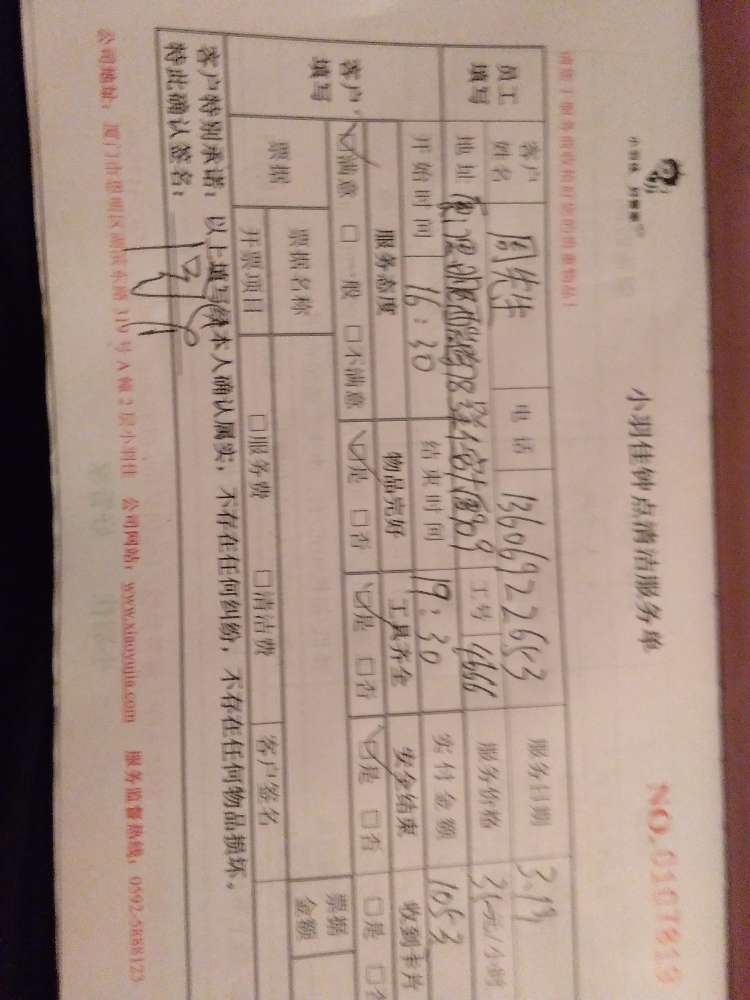 小羽佳钟点清洁服务单
NO.0107819
员工填写
客户姓名 周先生 电话 13606922653 服务日期 3.19
地址 工号 4666 服务价格 35元/小时
开始时间 16:30 结束时间 19:30 实付金额 105
客户填写
服务态度 物品完好 工具齐全 安全结束 收到卡片
☑满意 □一般 □不满意 ☑是 □否 ☑是 □否 ☑是 □否 □是
票据 票据名称 票据金额
开票项目 □服务费 □清洁费 客户签名
客户特别承诺：以上填写经本人确认属实，不存在任何纠纷，不存在任何物品损坏。
特此确认签名：
公司地址：厦门市思明区湖滨东路 号A幢2层小羽佳 公司网站：www.xiaoyujia.com 服务监督热线：0592-5888123